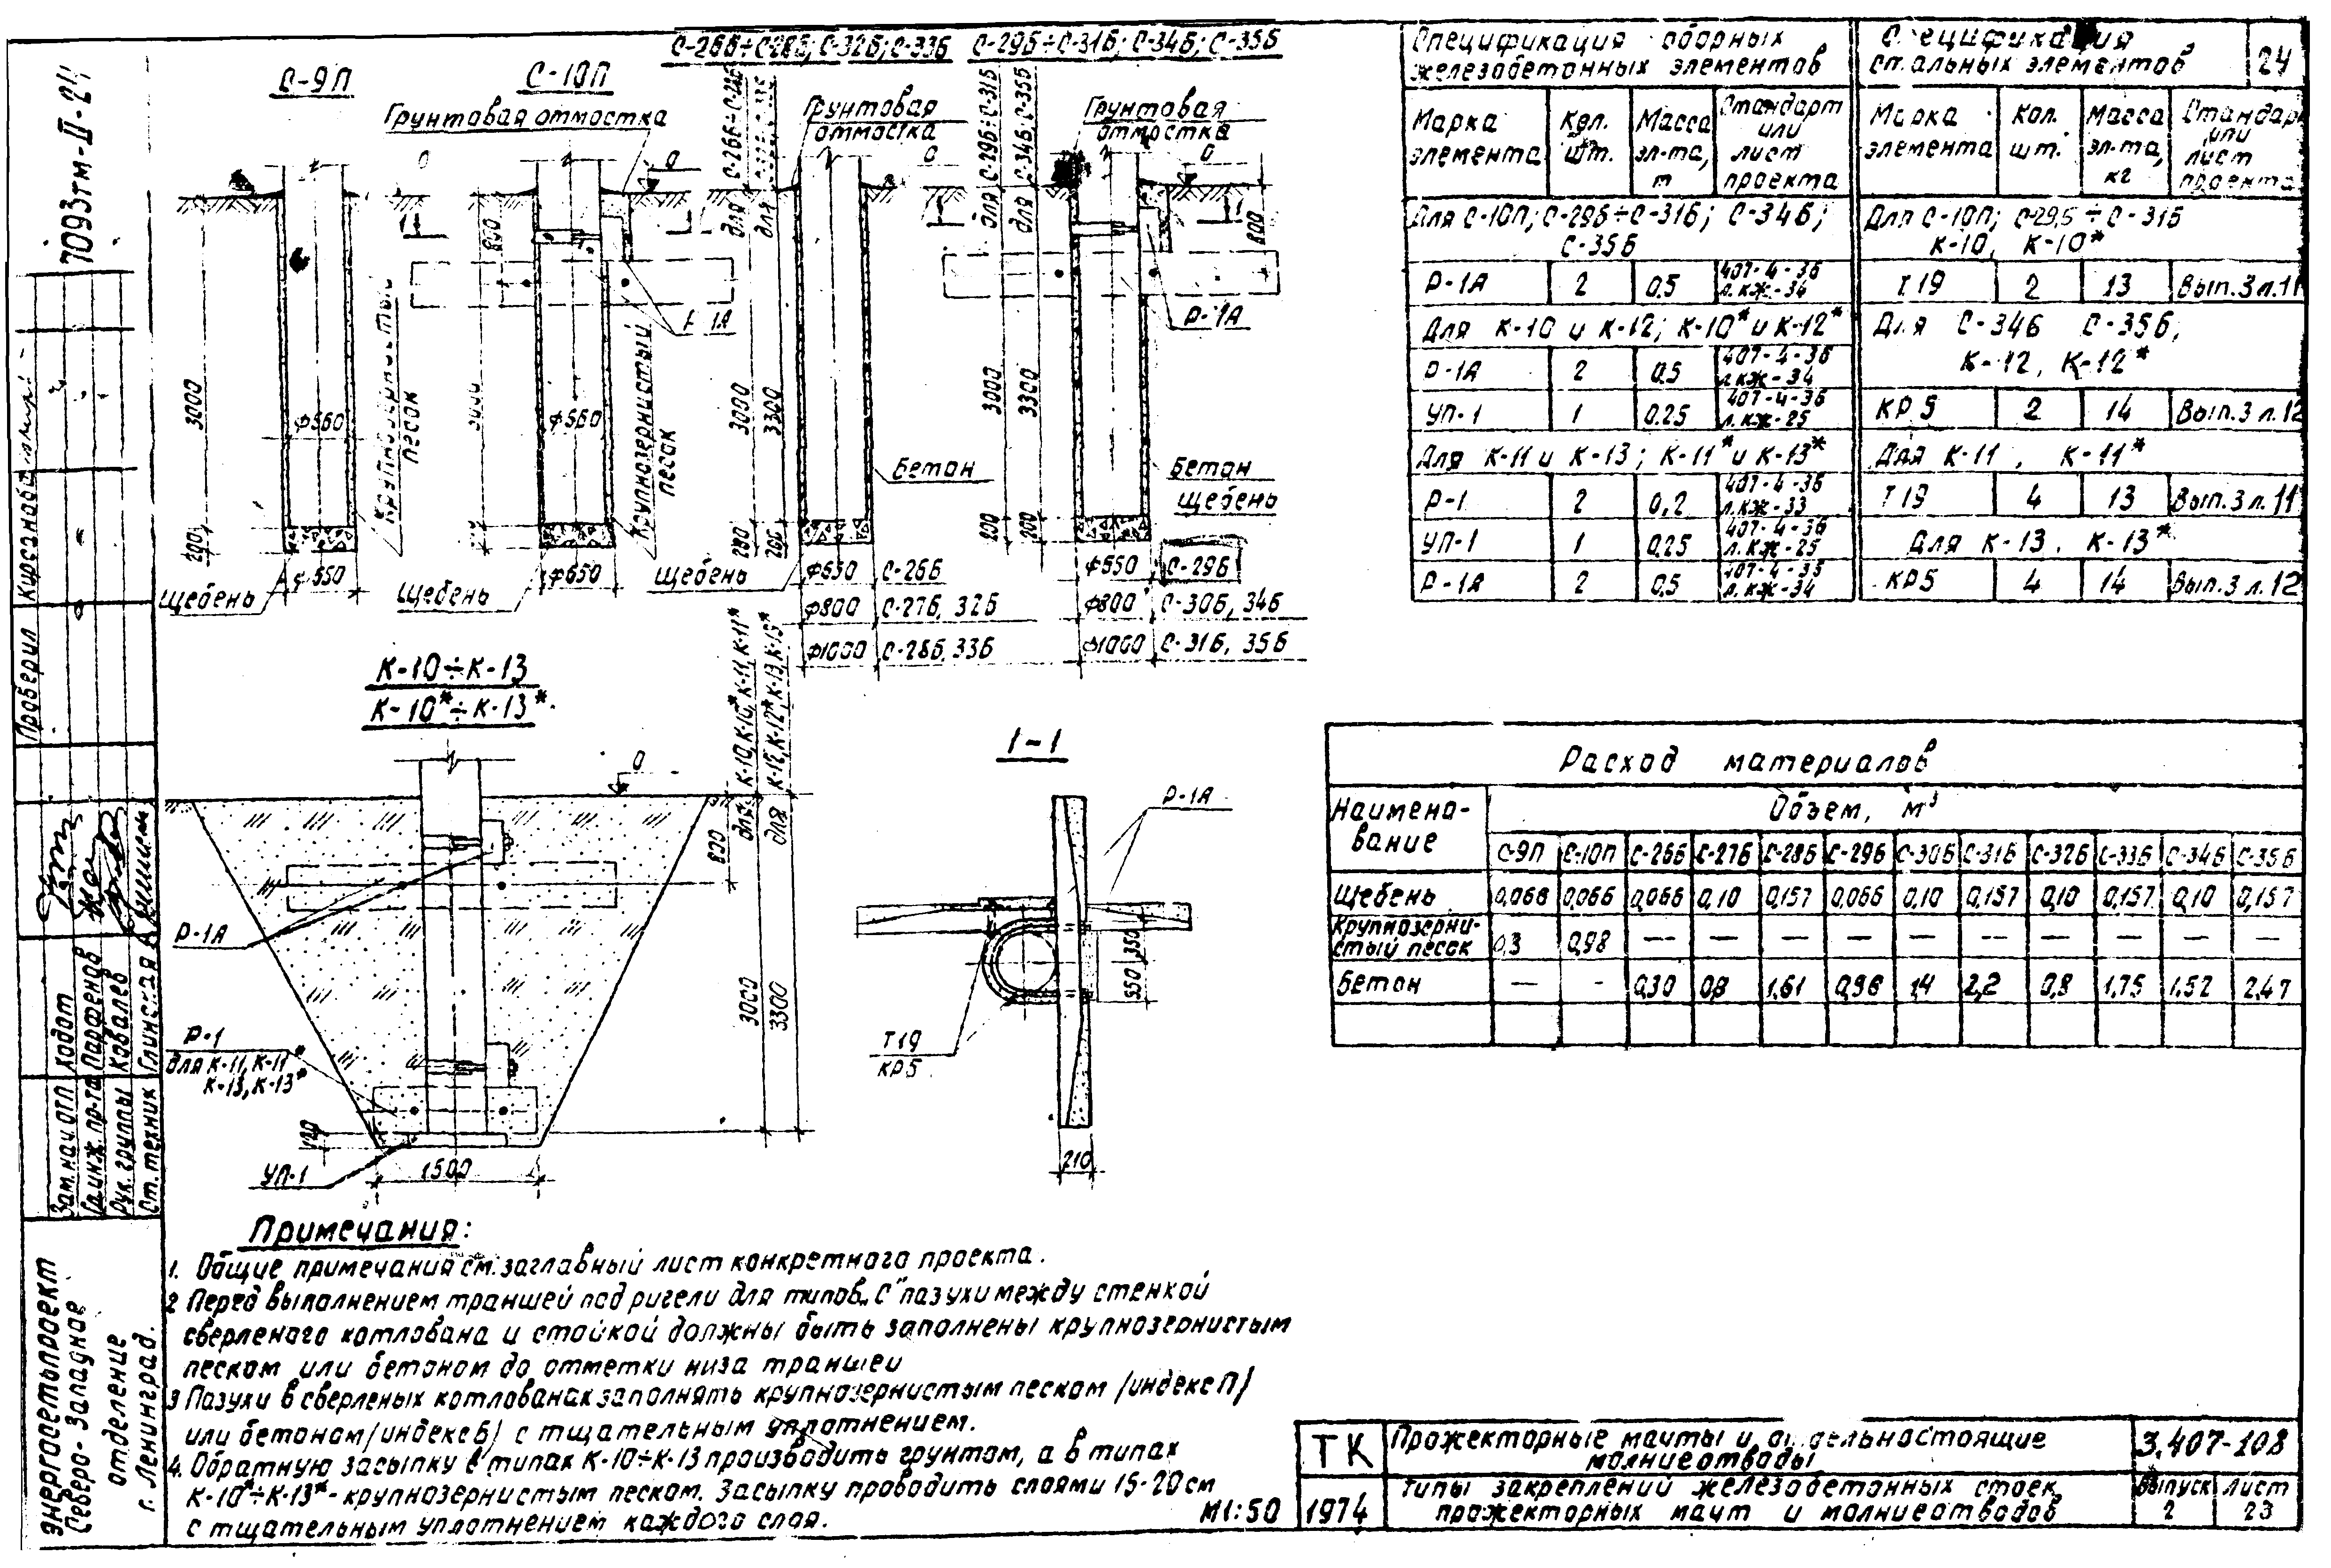 7093тм-II-24
С-9П
С-10П
С-26Б÷С-28Б; С-32Б; С-33Б
С-29Б÷С-31Б; С-34Б; С-35Б
Грунтовая отмостка
Грунтовая
отмостка
Грунтовая
отмостка
0
0
0
0
для С-26Б÷С-28Б
для
для С-29Б÷С-31Б
для С-34Б; С-35Б
800
800
1
1
1
1
Р-1А
Р-1А
3000
3000
3300
3000
3300
ф560
ф560
Крупнозернистый
песок
Крупнозернистый
песок
Бетон
Бетон
Щебень
200
200
200
200
Щебень
ф650
Щебень
ф650
Щебень
ф650 С-26Б
ф800 С-27Б, 32Б
ф1000 С-28Б, 33Б
ф650 С-29Б
ф800 С-30Б, 34Б
ф1000 С-31Б, 35Б
К-10÷К-13
К-10*÷К-13*
для К-10, К-10*, К-11, К-11*
для К-12, К-12*, К-13, К-13*
0
800
3000
3300
Р-1А
Р-1
для К-11, К-11*
К-13, К-13*
120
УП-1
1500
1-1
Р-1А
350
550
Т19
КР5
210
Спецификация сборных
железобетонных элементов
Марка элемента Кол. шт. Масса эл-та, т Стандарт или лист проекта
Для С-10П; С-29Б÷С-31Б; С-34Б;
С-35Б
Р-1А 2 0.5 407-4-36 л. КЖ-34
Для К-10 и К-12; К-10* и К-12*
Р-1А 2 0.5 407-4-36 л. КЖ-34
УП-1 1 0.25 407-4-36 л. КЖ-25
Для К-11 и К-13; К-11* и К-13*
Р-1 2 0,2 407-4-36 л. КЖ-33
УП-1 1 0.25 407-4-36 л. КЖ-25
Р-1А 2 0.5 407-4-36 л. КЖ-34
Спецификация
стальных элементов
24
Марка элемента Кол. шт. Масса эл-та, кг Стандарт или лист проекта
Для С-10П; С-29Б÷С-31Б
К-10, К-10*
Т19 2 13 Вып.3 л.11
Для С-34Б С-35Б,
К-12, К-12*
КР5 2 14 Вып.3 л.12
Для К-11, К-11*
Т19 4 13 Вып.3 л.11
Для К-13, К-13*
КР5 4 14 Вып.3 л.12
Расход материалов
Наименование Объем, м³
С-9П С-10П С-26Б С-27Б С-28Б С-29Б С-30Б С-31Б С-32Б С-33Б С-34Б С-35Б
Щебень 0,066 0,066 0,066 0,10 0,157 0,066 0,10 0,157 0,10 0,157 0,10 0,157
Крупнозернистый песок 0,3 0,98 — — — — — — — — — —
Бетон — - 0,30 0,8 1.61 0,96 1,4 2,2 0,8 1,75 1,52 2,47
Примечания:
1. Общие примечания см. заглавный лист конкретного проекта.
2 Перед выполнением траншей под ригели для типов „С" пазухи между стенкой
сверленого котлована и стойкой должны быть заполнены крупнозернистым
песком или бетоном до отметки низа траншеи
3 Пазухи в сверленых котлованах заполнять крупнозернистым песком /индекс П/
или бетоном /индекс Б/ с тщательным уплотнением.
4. Обратную засыпку в типах К-10÷К-13 производить грунтом, а в типах
К-10*÷К-13* - крупнозернистым песком. Засыпку проводить слоями 15-20 см
с тщательным уплотнением каждого слоя.
М1:50
ТК
1974
Прожекторные мачты и отдельностоящие
молниеотводы
3.407-108
Типы закреплений железобетонных стоек
прожекторных мачт и молниеотводов
Выпуск
2
Лист
23
Проверил
Кирсанова
Зам. нач отп Ходот
Гл. инж. пр-та Парфенов
Рук. группы Ковалев
Ст. техник Глинская
Энергосетьпроект
Северо-Западное
отделение
г. Ленинград.